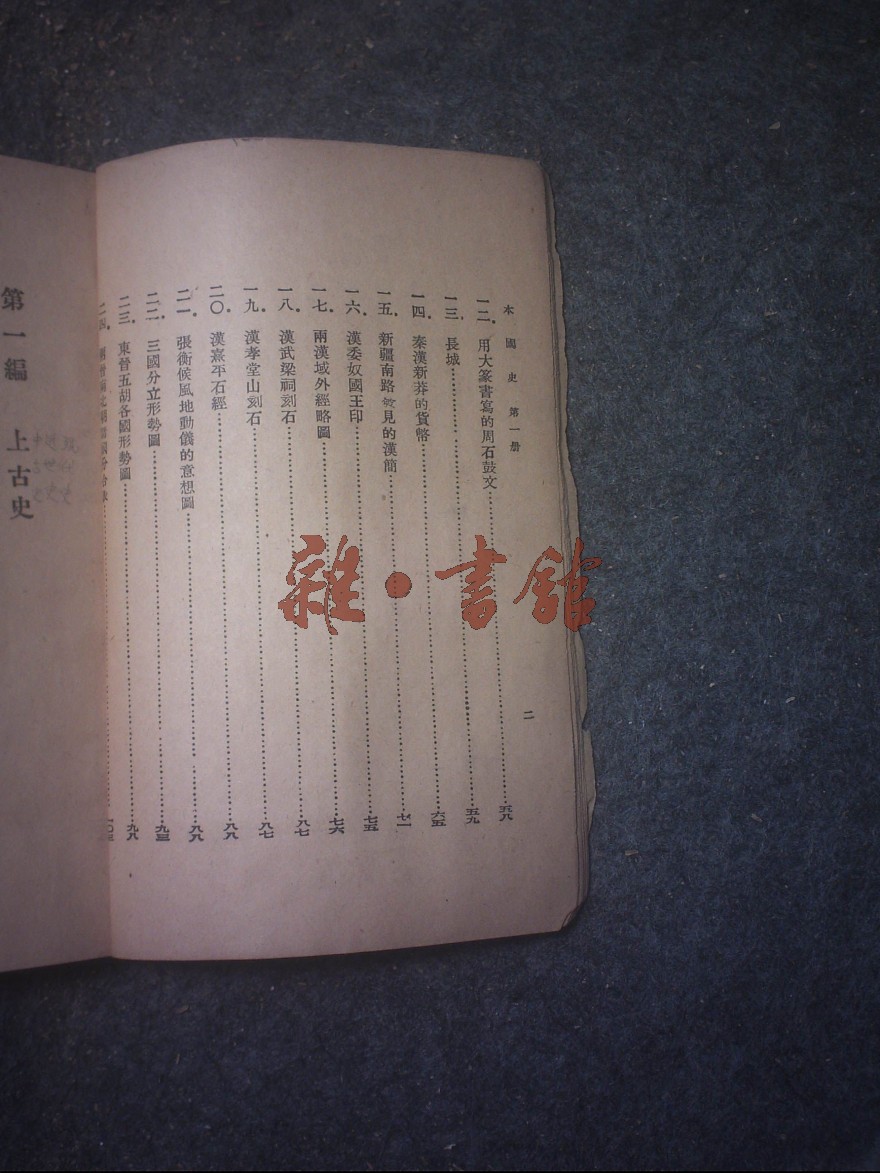 本國史 第一册
一二．用大篆書寫的周石鼓文……五八
一三．長城……五九
一四．秦漢新莽的貨幣……六五
一五．新疆南路發見的漢簡……七一
一六．漢委奴國王印……七五
一七．兩漢域外經略圖……七六
一八．漢武梁祠刻石……八七
一九．漢孝堂山刻石……八七
二〇．漢熹平石經……八八
二一．張衡候風地動儀的意想圖……八八
二二．三國分立形勢圖……九三
二三．東晉五胡各國形勢圖……九八
二四．
二
第一編 上古史
雜·書館